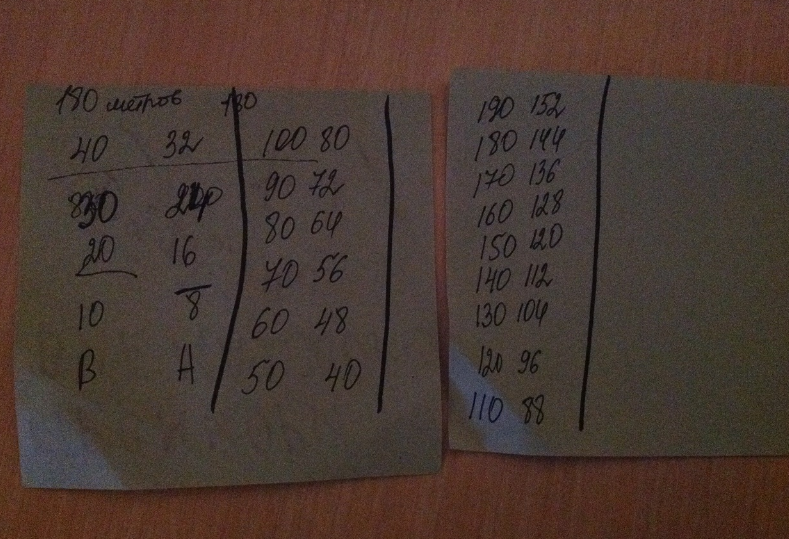 180 метров 180
40 32
30 24
20 16
10 8
В А
100 80
90 72
80 64
70 56
60 48
50 40
190 152
180 144
170 136
160 128
150 120
140 112
130 104
120 96
110 88